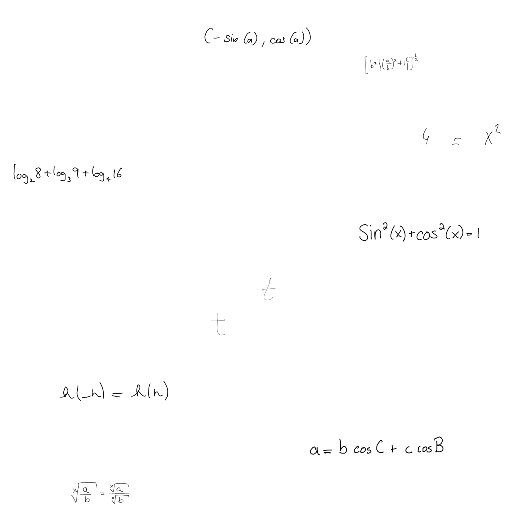 (-sin(a), cos(a))
4 = x²
log₂8+log₃9+log₄16
Sin²(x)+cos²(x)=1
t
t
h(-n) = h(n)
a = b cosC + c cosB
ⁿ√(a/b) = ⁿ√a/ⁿ√b